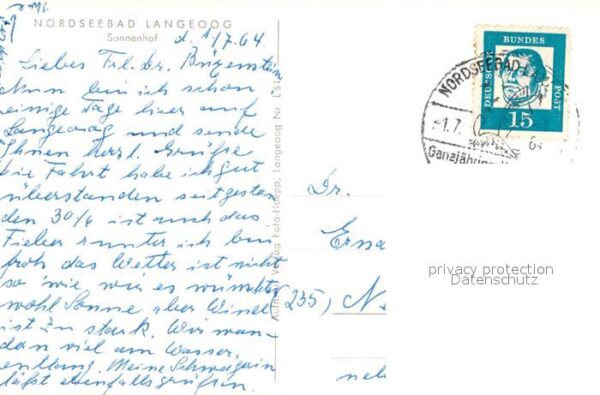 NORDSEEBAD LANGEOOG
Sonnenhof
d. 1/7.64.
Liebes Frl. Dr.
Nun bin ich schon
einige Tage hier auf
Langeoog und sende
Ihnen herzl. Grüße
die Fahrt habe ich gut
überstanden seit gestern
den 30/6 ist auch das
Fieber runter ich bin
froh das Wetter ist nicht
so wie wir es wünschten
wohl Sonne aber Wind
ist zu stark. Wir wan-
dern viel am Wasser
entlang. Meine Schwägerin
läßt ebenfalls grüßen.
Verlag Foto-Hampp, Langeoog Nr.
Dr.
Erna
(235)
DEUTSCHE BUNDES POST
15
NORDSEEBAD
-1.7.
Ganzjährige
privacy protection
Datenschutz